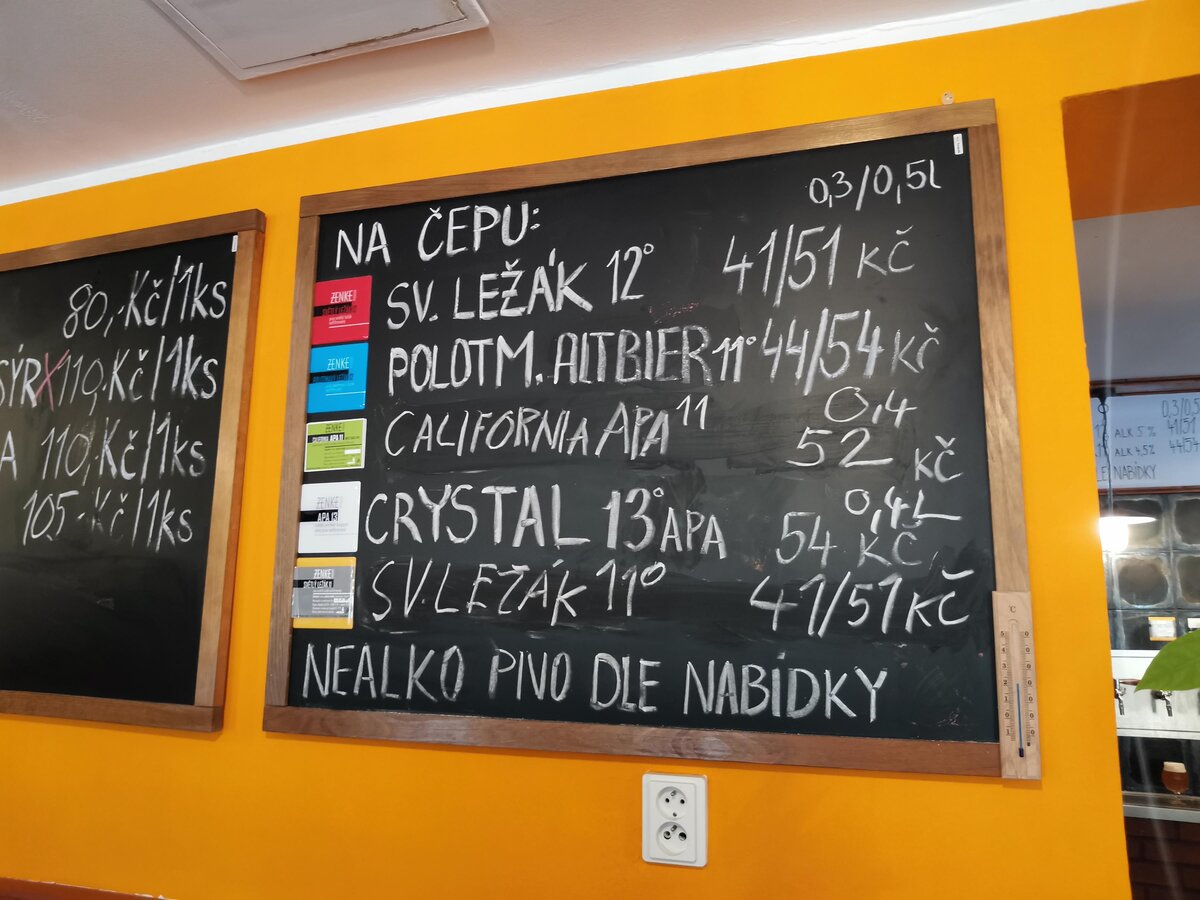 80,-Kč/1ks
SÝR 110,-Kč/1ks
A 110,-Kč/1ks
105,-Kč/1ks
0,3/0,5l
NA ČEPU:
SV. LEŽÁK 12° 41/51 KČ
POLOTM. ALTBIER 11° 44/54 KČ
CALIFORNIA APA 11 0,4
52 KČ
CRYSTAL 13° APA 0,4L
54 KČ
SV. LEŽÁK 11° 41/51 KČ
NEALKO PIVO DLE NABÍDKY
ZENKE
ZENKE
ZENKE
CALIFORNIA APA 11
ZENKE
APA 13
ZENKE
SVĚTLÝ LEŽÁK 11
°C
0,3/0,5
ALK 5% 41/51
ALK 4,5% 44/54
LE NABÍDKY